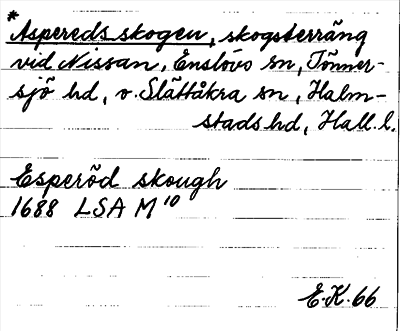 *
Aspereds skogen, skogsterräng
vid Nissan, Enslövs sn, Tönner-
sjö hd, o. Slättåkra sn, Halm-
stads hd, Hall. l.
Esperöd skough
1688 LSA M 10
E.K. 66